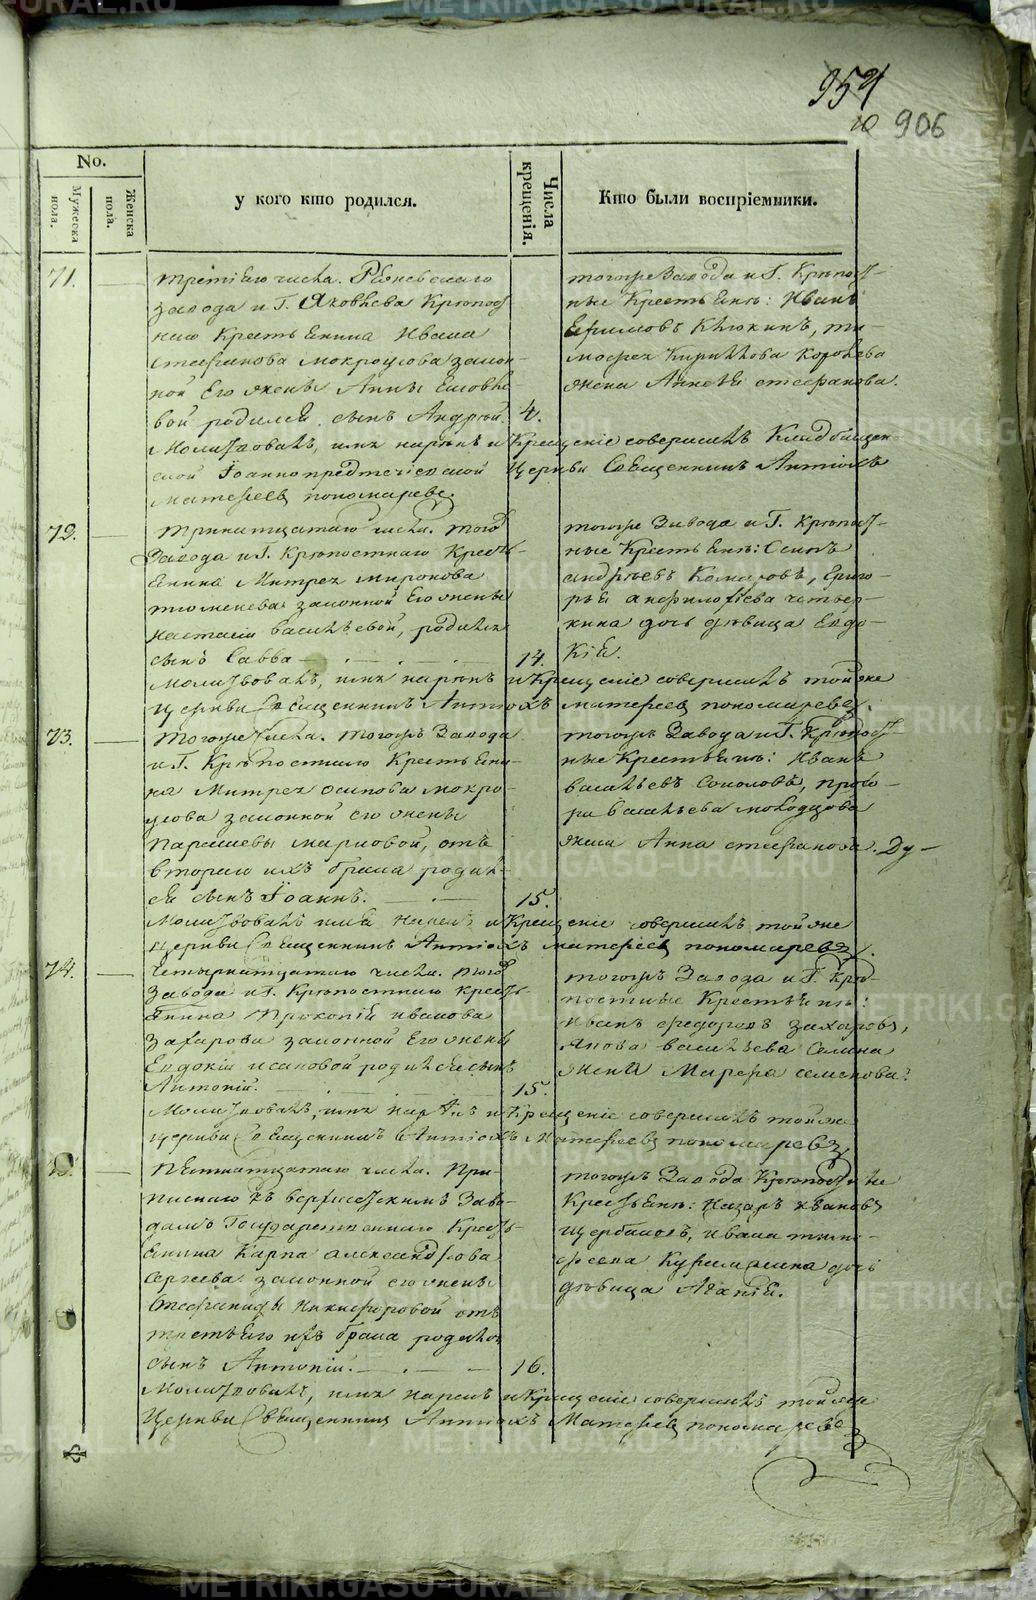 954
10 906
No.
Мужеска пола.
Женска пола.
у кого кто родился.
Числа крещенія.
Кто были воспріемники.
71.
третьяго числа. Ревневскаго
завода и Г. Яковлева Крѣпост
наго Крестьянина Ивана
Стефанова Мокроусова закон-
ной его жены Анны
вой родился сынъ Андрей. 4.
Молитвовалъ, имя нарекъ и Крещеніе совершилъ Кладбищен
ской Іоаннопредтечіевской Церкви Священникъ Антіохъ
Матѳеевъ Пономаревъ.
тогоже Завода и Г. Крѣпост-
ные Крестьяне: Иванъ
Ефимовъ Клюкинъ, Ти-
моѳея Кирилова Королева
жена стефанова.
72.
тринатцатаго числа. того
Завода и Г. Крѣпостнаго Кресть-
янина Митрея Миронова
Тюменева законной его жены
Настасіи Васильевой, родился
сынъ Савва 14.
Молитвовалъ, имя нарекъ и Крещеніе совершилъ тойже
церкви Священникъ Антіохъ Матѳеевъ Пономаревъ.
тогоже Завода и Г. Крѣпост-
ные Крестьяне: Осипъ
Андреевъ Комаровъ, Григо-
рья Анфилофіева Четвер-
кина дочь дѣвица Евдо-
кія.
73.
Тогоже числа. тогожъ Завода
и Г. Крѣпостнаго Крестьяни-
на Митрея Осипова Мокро-
усова законной его жены
Парасковы Марковой, отъ
втораго ихъ брака родил-
ся сынъ Іоаннъ. 15.
Молитвовалъ имя нарекъ и Крещеніе совершилъ тойже
церкви Священникъ Антіохъ Матѳеевъ Пономаревъ.
тогожъ Завода и Г. Крѣпост-
ные Крестьяне: Иванъ
Васильевъ Соколовъ,
ра Васильева Молодцова
жена Анна стефанова. Ду-
74.
Четырнатцатаго числа. того
Завода и Г. Крѣпостнаго Кресть-
янина Прокопія Иванова
Захарова законной Его жены
Евдокіи Исаковой родился сынъ
Антоній. 15.
Молитвовалъ, имя нарекъ и Крещеніе совершилъ тойже
церкви Священникъ Антіохъ Матѳеевъ Пономаревъ
тогожъ Завода и Г. Крѣ-
постные Крестьяне:
Иванъ Федоровъ Захаровъ,
Якова Васильева Селина
жена Марѳа семенова.
75.
Пятнатцатаго числа. При-
писнаго къ Верхисетскимъ Заво-
дамъ Государственнаго Кресть-
янина Карпа Александрова
Сергеева законной его жены
Стефаниды Никифоровой отъ
третьяго ихъ брака родился
сынъ Антоній. 16.
Молитвовалъ, имя нарекъ и Крещеніе совершилъ тойже
Церкви Священникъ Антіохъ Матѳеевъ Пономаревъ
тогожъ Завода Крѣпостные
Крестьяне: Назаръ Ивановъ
Щербаковъ, Ивана Тимо-
феева дочь
дѣвица Агапія.
METRIKI.GASO-URAL.RU